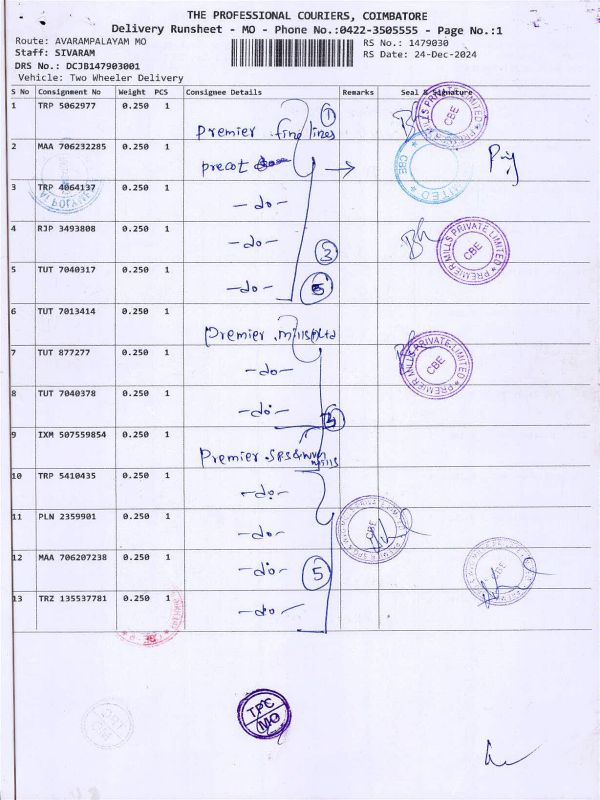 THE PROFESSIONAL COURIERS, COIMBATORE
Delivery Runsheet - MO - Phone No.:0422-3505555 - Page No.:1
Route: AVARAMPALAYAM MO
RS No.: 1479030
Staff: SIVARAM
RS Date: 24-Dec-2024
DRS No.: DCJB147903001
Vehicle: Two Wheeler Delivery
S No Consignment No Weight PCS Consignee Details Remarks Seal & Signature
1 TRP 5062977 0.250 1 Premier fine lines 1
2 MAA 706232285 0.250 1 precot
3 TRP 4064137 0.250 1 -do-
4 RJP 3493808 0.250 1 -do- 3
5 TUT 7040317 0.250 1 -do-
6 TUT 7013414 0.250 1 Premier mills
7 TUT 877277 0.250 1 -do-
8 TUT 7040378 0.250 1 -do-
9 IXM 507559854 0.250 1 Premier
10 TRP 5410435 0.250 1 -do-
11 PLN 2359901 0.250 1 -do-
12 MAA 706207238 0.250 1 -do- 5
13 TRZ 135537781 0.250 1 -do-
PREMIER MILLS PRIVATE LIMITED
CBE
CBE
LIMITED
PREMIER MILLS PRIVATE LIMITED
CBE
PREMIER MILLS PRIVATE LIMITED
CBE
CBE
CBE
TPC
MO